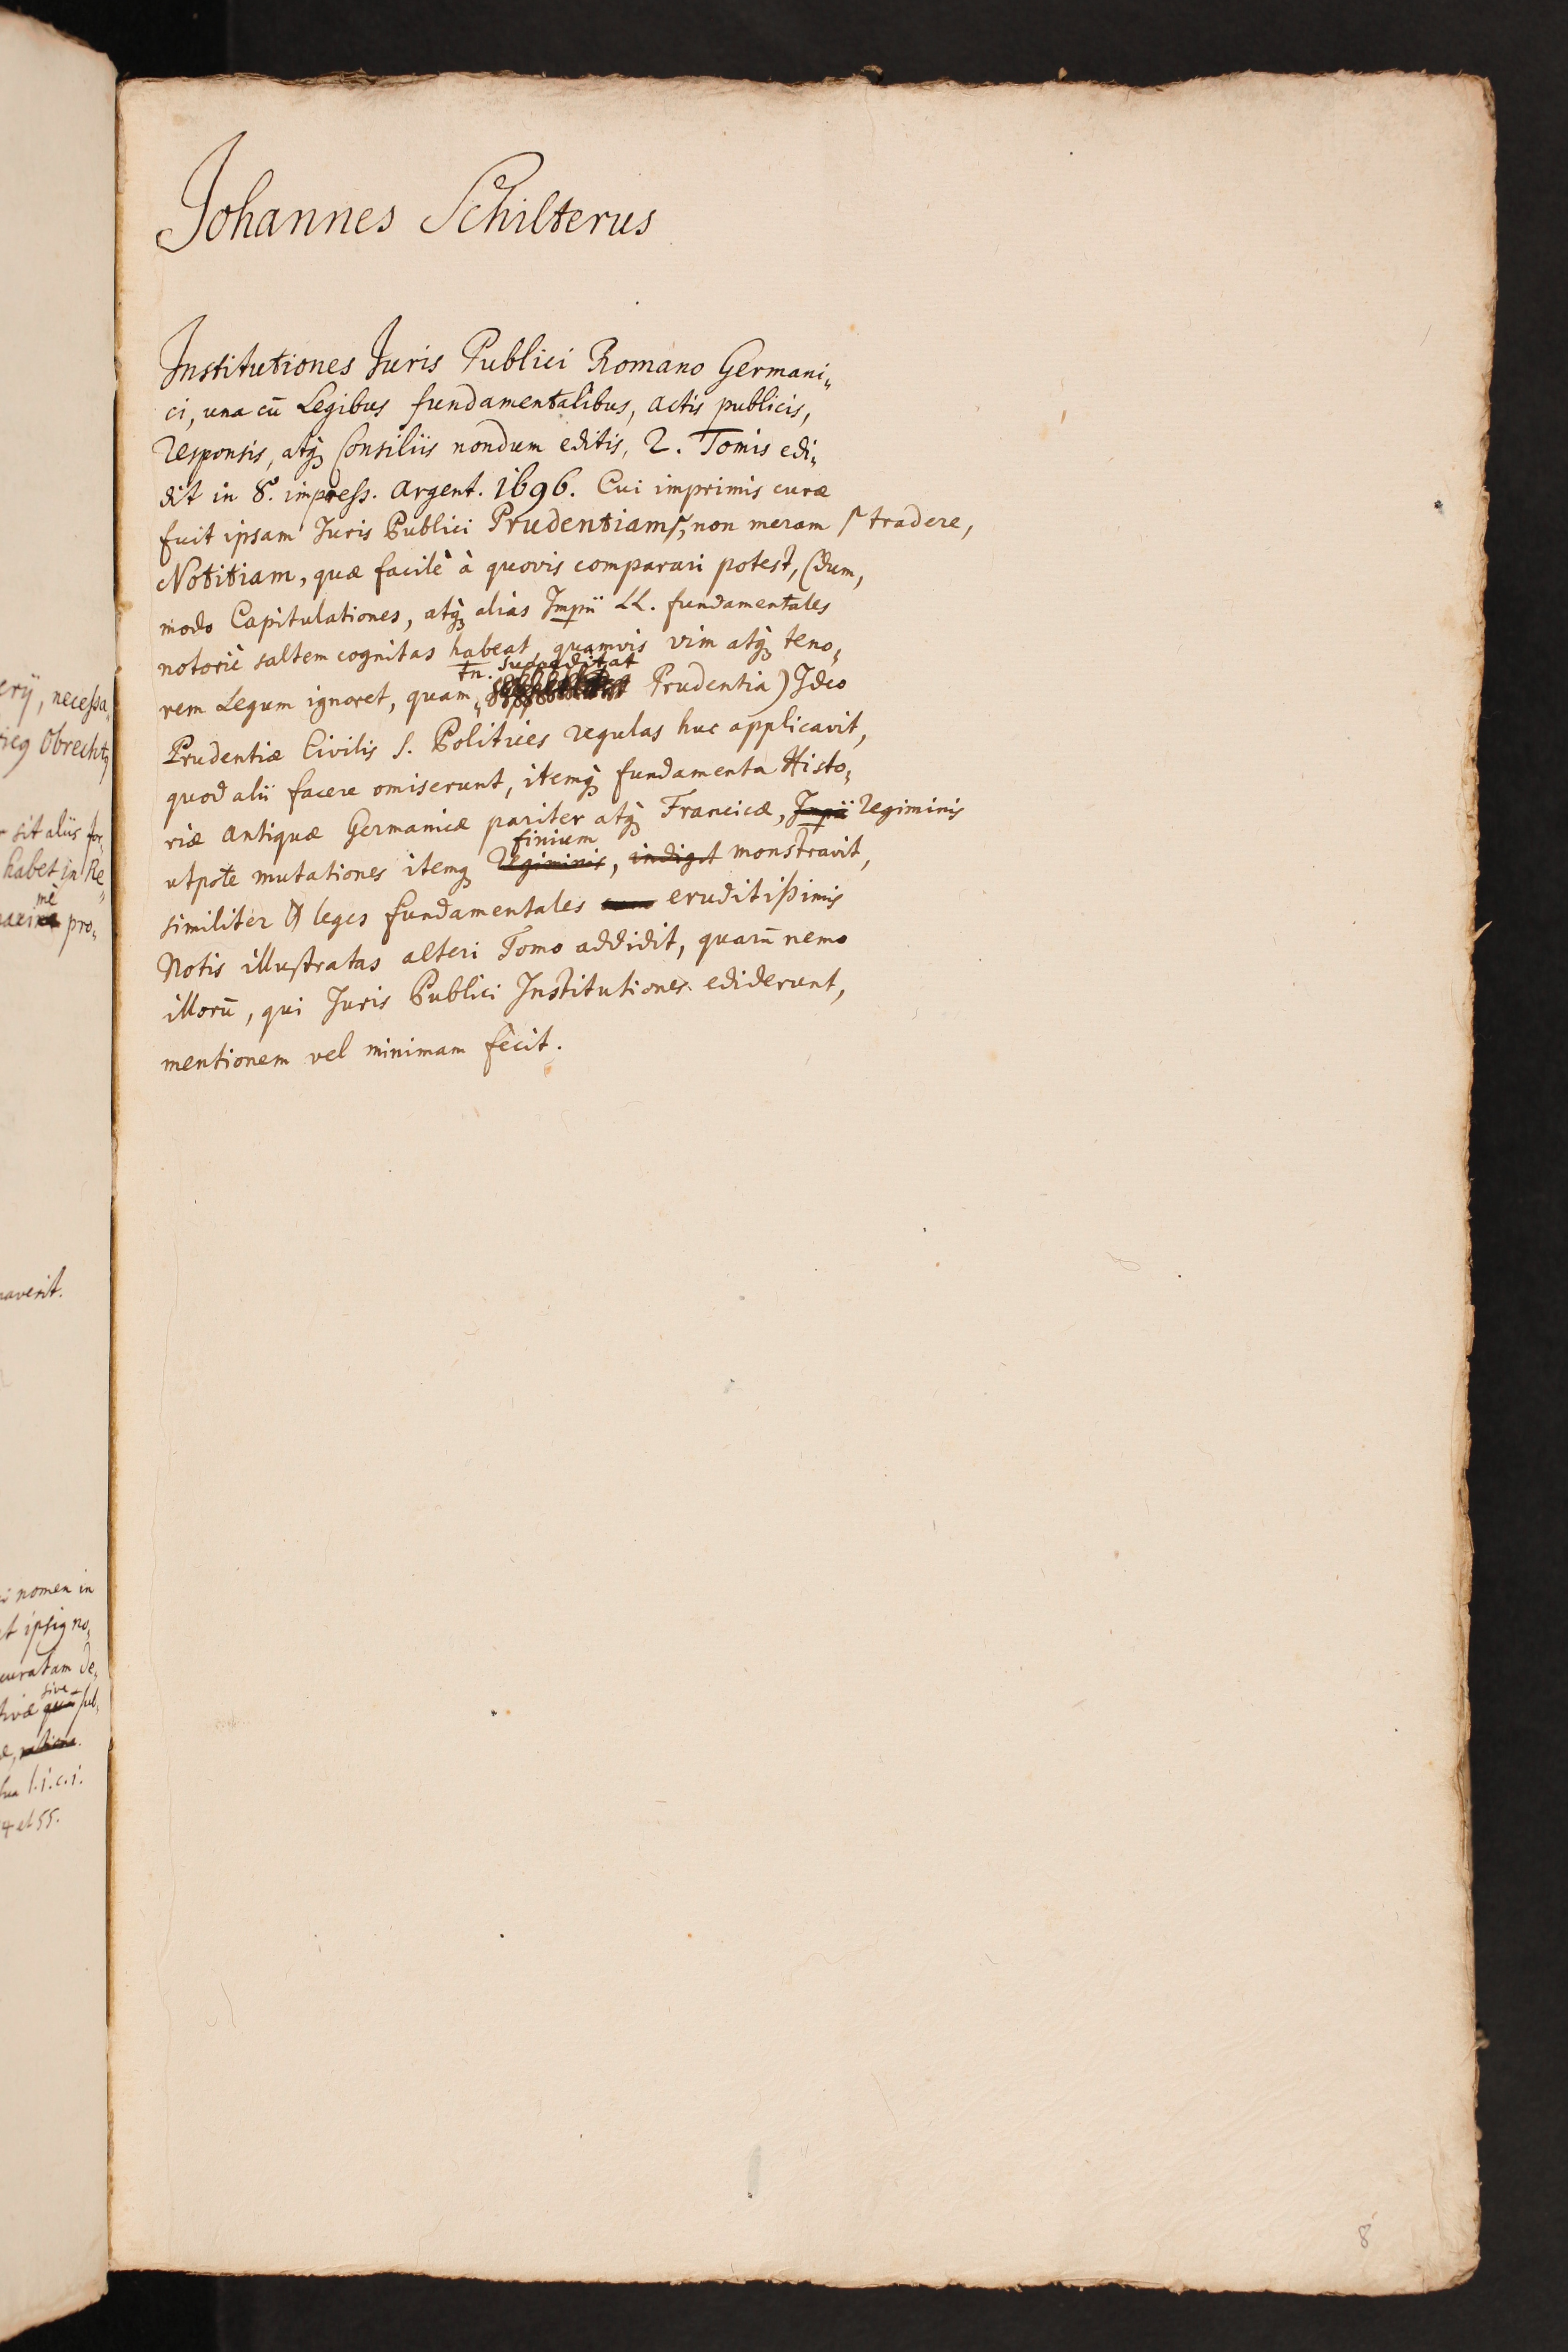 Johannes Schilterus
Institutiones Juris Publici Romano Germani„
ci, una cū Legibus fundamentalibus, actis publicis,
responsis, atq; Consiliis nondum editis, 2. Tomis edi„
dit in 8º. impress. Argent. 1696. Cui imprimis curæ
fuit ipsam Juris Publici Prudentiam⌠, non meram ⌠ tradere,
Notitiam, quæ facilè à quovis comparari potest, (dum„
modo Capitulationes, atq; alias Impii LL. fundamentales
notoriè saltem cognitas habeat, quamvis vim atq; teno„
tn. suppeditat
rem Legum ignoret, quam „ Prudentia) Ideo
Prudentiæ Civilis s. Politices regulas huc applicavit,
quod alii facere omiserunt, itemq; fundamenta Histo„
riæ Antiquæ Germanicæ pariter atq; Francicæ, Impii Regiminis
finium
utpote mutationes itemq; Regiminis, indigit monstravit,
similiter & leges fundamentales eruditissimis
Notis illustratas alteri Tomo addidit, quarū nemo
illorū, qui Juris Publici Institutiones ediderunt,
mentionem vel minimam fecit.
8
erij, necessa„
Obrechtg
sit aliis
habet in Re„
mè
pro„
averit.
nomen in
ipsig no„
curatam de„
sive
l.i.c.i.
4 et 55.